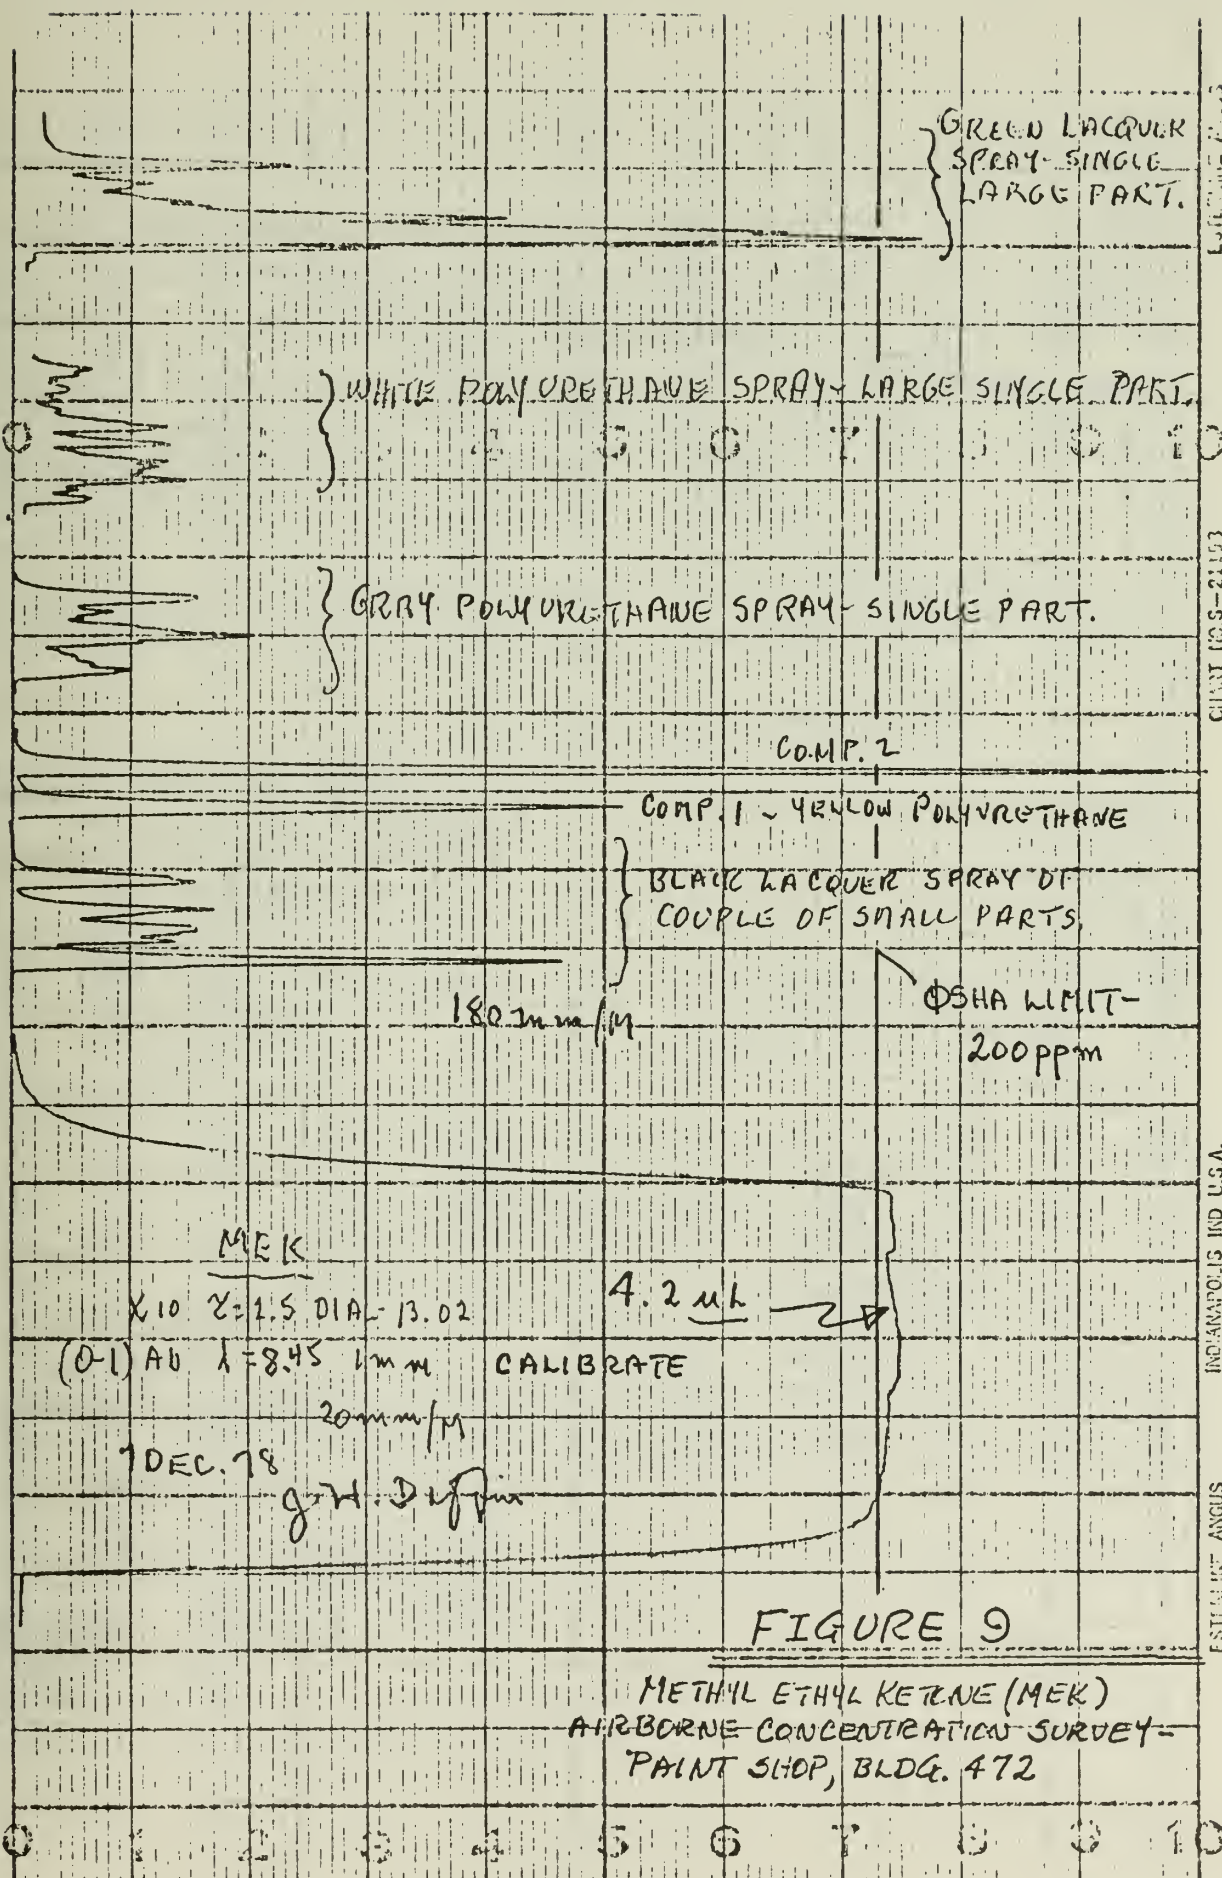 GREEN LACQUER
SPRAY - SINGLE
LARGE PART.
WHITE POLYURETHANE SPRAY - LARGE SINGLE PART.
0 5 6 7 9 10
GRAY POLYURETHANE SPRAY - SINGLE PART.
COMP. 2
COMP. 1 - YELLOW POLYURETHANE
BLACK LACQUER SPRAY OF
COUPLE OF SMALL PARTS.
180 mm/M
OSHA LIMIT-
200 ppm
MEK
4.2 uL
X10 DIAL - 13.02
(0-1) Ab λ = 8.45 1mm CALIBRATE
20 mm/M
7 DEC. 78
FIGURE 9
METHYL ETHYL KETONE (MEK)
AIRBORNE CONCENTRATION SURVEY-
PAINT SHOP, BLDG. 472
0 1 2 3 4 5 6 7 8 9 10
INDIANAPOLIS IND U.S.A.
ESTERLINE ANGUS